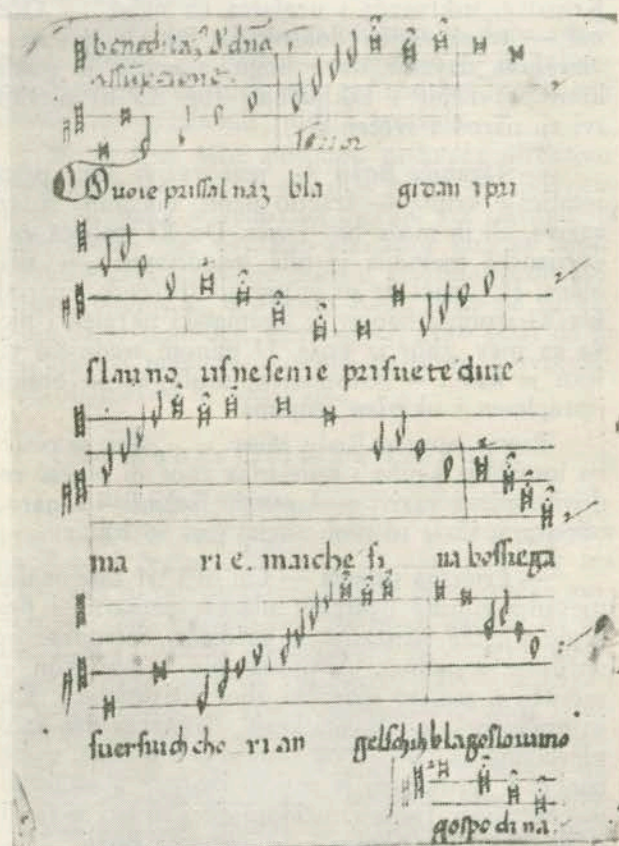 benedictaʒ d' dnā
assūpcione
Tenor
Ouoie prissal náʒ bla gidan ipri
slauno, usnesenie prisuete diue
ma rie. maiche si na bossiega
suersuich cho ri an gelschih blagoslouimo
gospodina